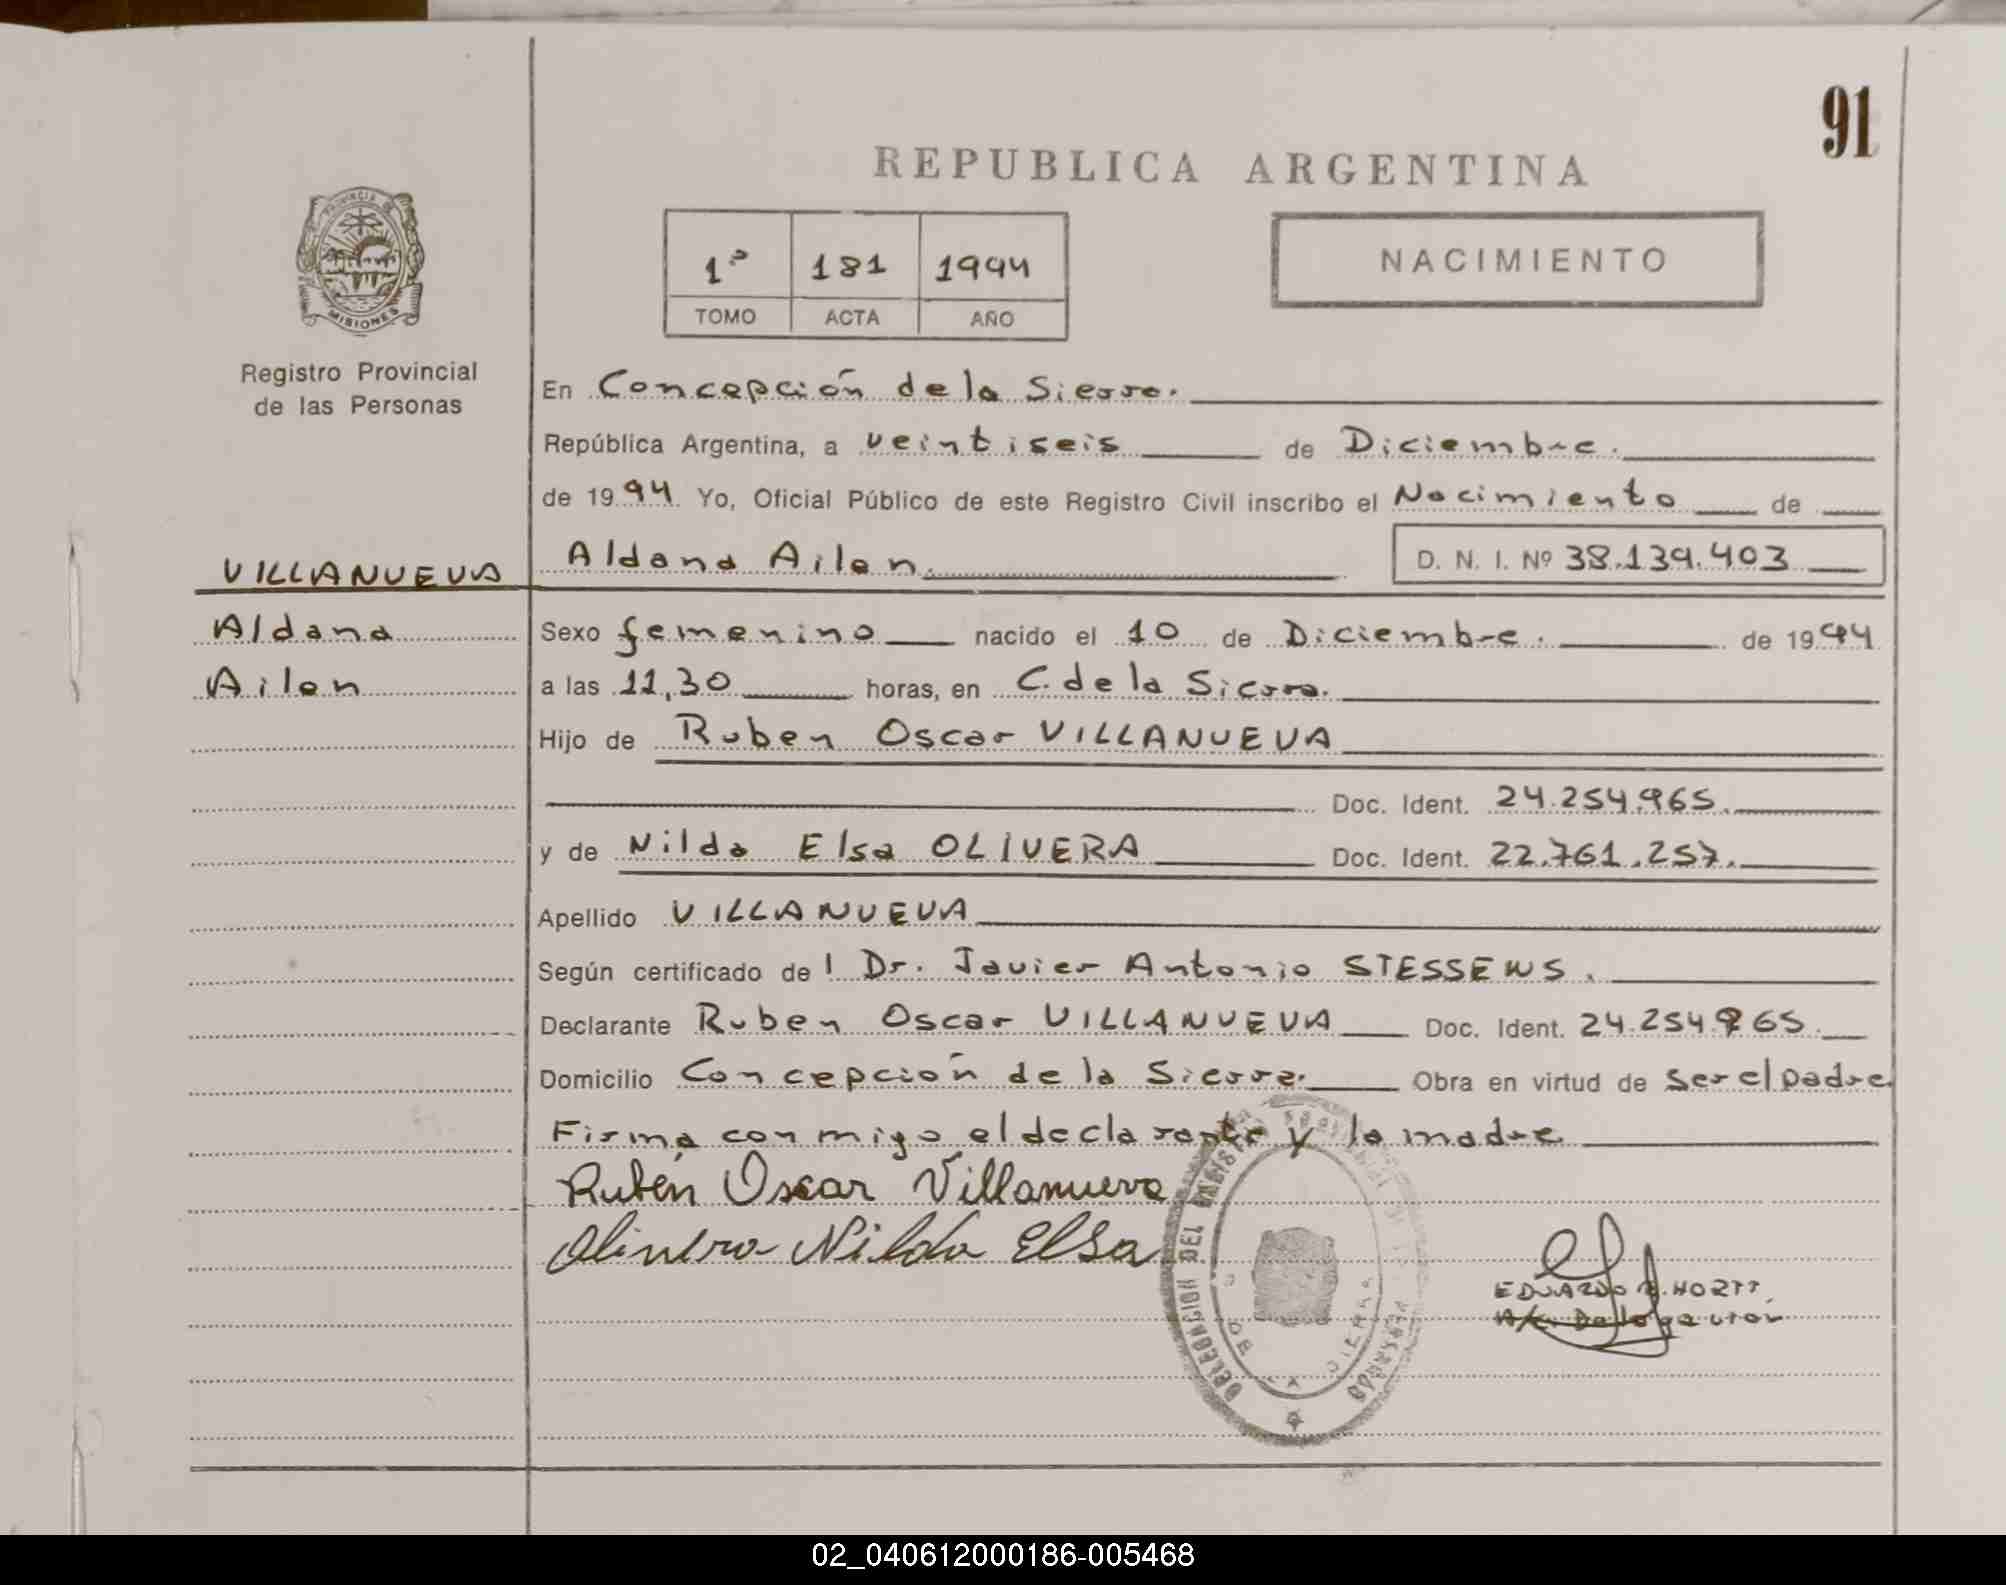 91
REPUBLICA ARGENTINA
PROVINCIA DE
MISIONES
Registro Provincial
de las Personas
1º 181 1994
TOMO ACTA AÑO
NACIMIENTO
En Concepción de la Sierra.
República Argentina, a veintiseis de Diciembre.
de 1994 Yo, Oficial Público de este Registro Civil inscribo el Nacimiento de
VILLANUEVA Aldana Ailen. D. N. I. Nº 38.139.403
Aldana Sexo femenino nacido el 10 de Diciembre. de 1994
Ailen a las 11,30 horas, en C. de la Sierra.
Hijo de Ruben Oscar VILLANUEVA
Doc. Ident. 24.254.965.
y de Nilda Elsa OLIVERA Doc. Ident. 22.761.257.
Apellido VILLANUEVA
Según certificado de l Dr. Javier Antonio STESSENS.
Declarante Ruben Oscar VILLANUEVA Doc. Ident. 24.254.965.
Domicilio Concepción de la Sierra. Obra en virtud de ser el padre
Firma con migo el declarante y la madre
Rubén Oscar Villanueva
Olivera Nilda Elsa
DELEGACION DEL
EDUARDO
02_040612000186-005468